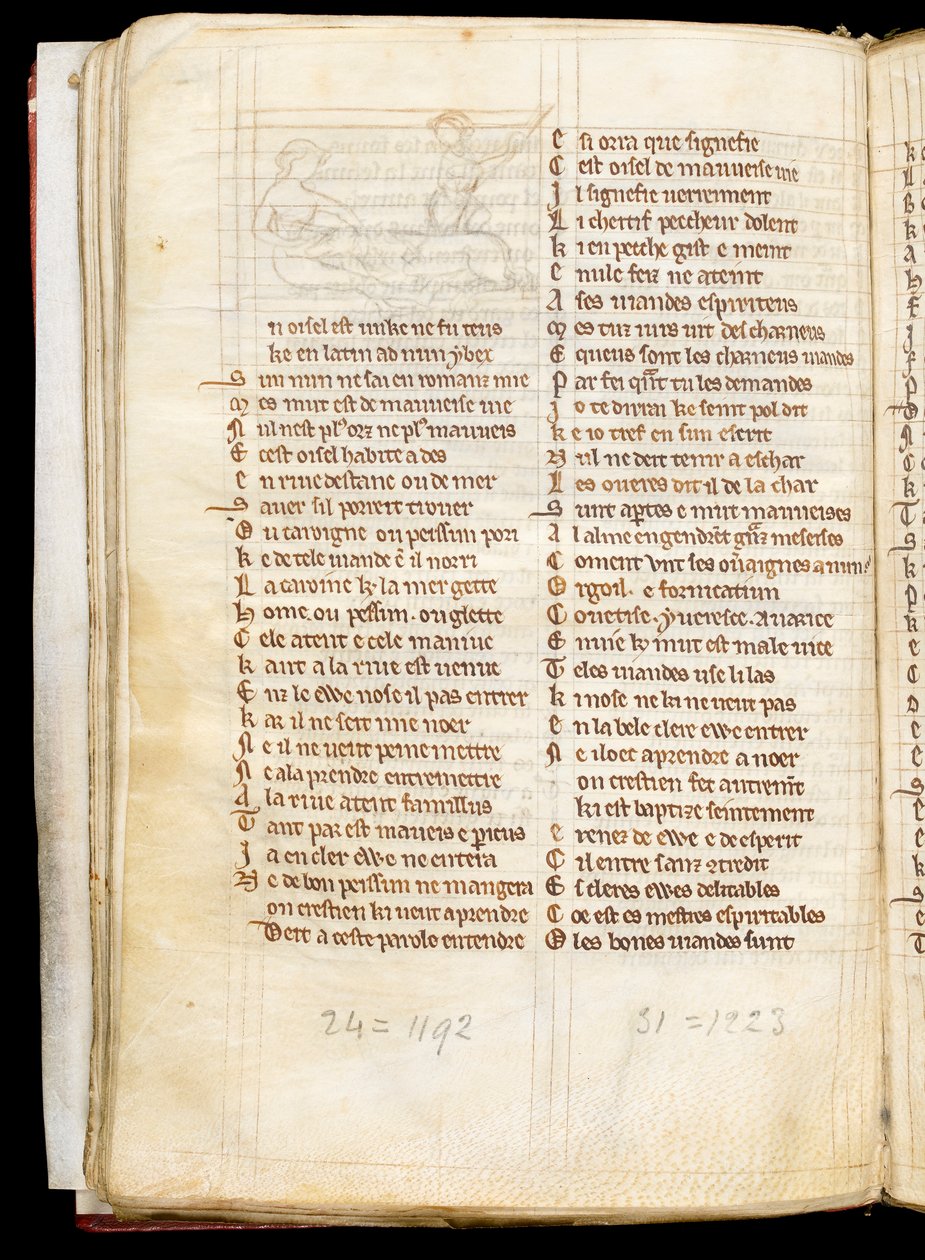 n oisel est unke ne fu teus
ke en latin ad nun ybex
S un nun ne sai en romanz mie
M es mut est de mauueise uie
N ul nest plꝰ orz ne plꝰ mauueis
E cest oisel habite a des
E n riue destanc ou de mer
S auer sil porreit trouer
O u caroigne ou peissun pori
K e de tele uiande ē il norri
L a caroine k la mer gette
H ome ou peissun . ou glette
C ele atent e cele maniue
K ant a la riue est uenue
E nz le ewe nose il pas entrer
K ar il ne seit mie noer
N e il ne ueut peine mettre
N e a la prendre entremettre
A la riue atent famillus
T ant par est maueis e ꝑicus
J a en cler ewe ne entera
N e de bon peissun ne mangera
on crestien ki ueut aprendre
Deit a ceste parole entendre
E si orra que signefie
C est oisel de mauueise uie
I l signefie uereiment
L i cheitif peccheur dolent
K i en pecche gist e meint
E nule feiz ne ateint
A ses uiandes espiriteus
M es tuz iurs uit des charneus
E queus sont les charneus uiandes
P ar fei qnt tu les demandes
J o te dirrai ke seint pol dit
K e io tref en sun escrit
N ul ne deit tenir a eschar
L es oueres dit il de la char
S unt aꝑtes e mut mauueises
A l alme engendrēt gnz meseises
C oment unt ses ouaignes a nun
O rgoil . e fornicatiun
C oueitise . yueresce . auarice
E nuie ky mut est male uice
T eles uiandes use li las
K i nose ne ki ne ueut pas
E n la bele clere ewe entrer
N e iloec aprendre a noer
on crestien fet autremēt
ki est baptize seintement
E renez de ewe e de esperit
C il entre sanz ꝯtredit
E s cleres ewes delitables
C oe est es mestres espiritables
O les bones uiandes sunt
24 = 1192
31 = 1223